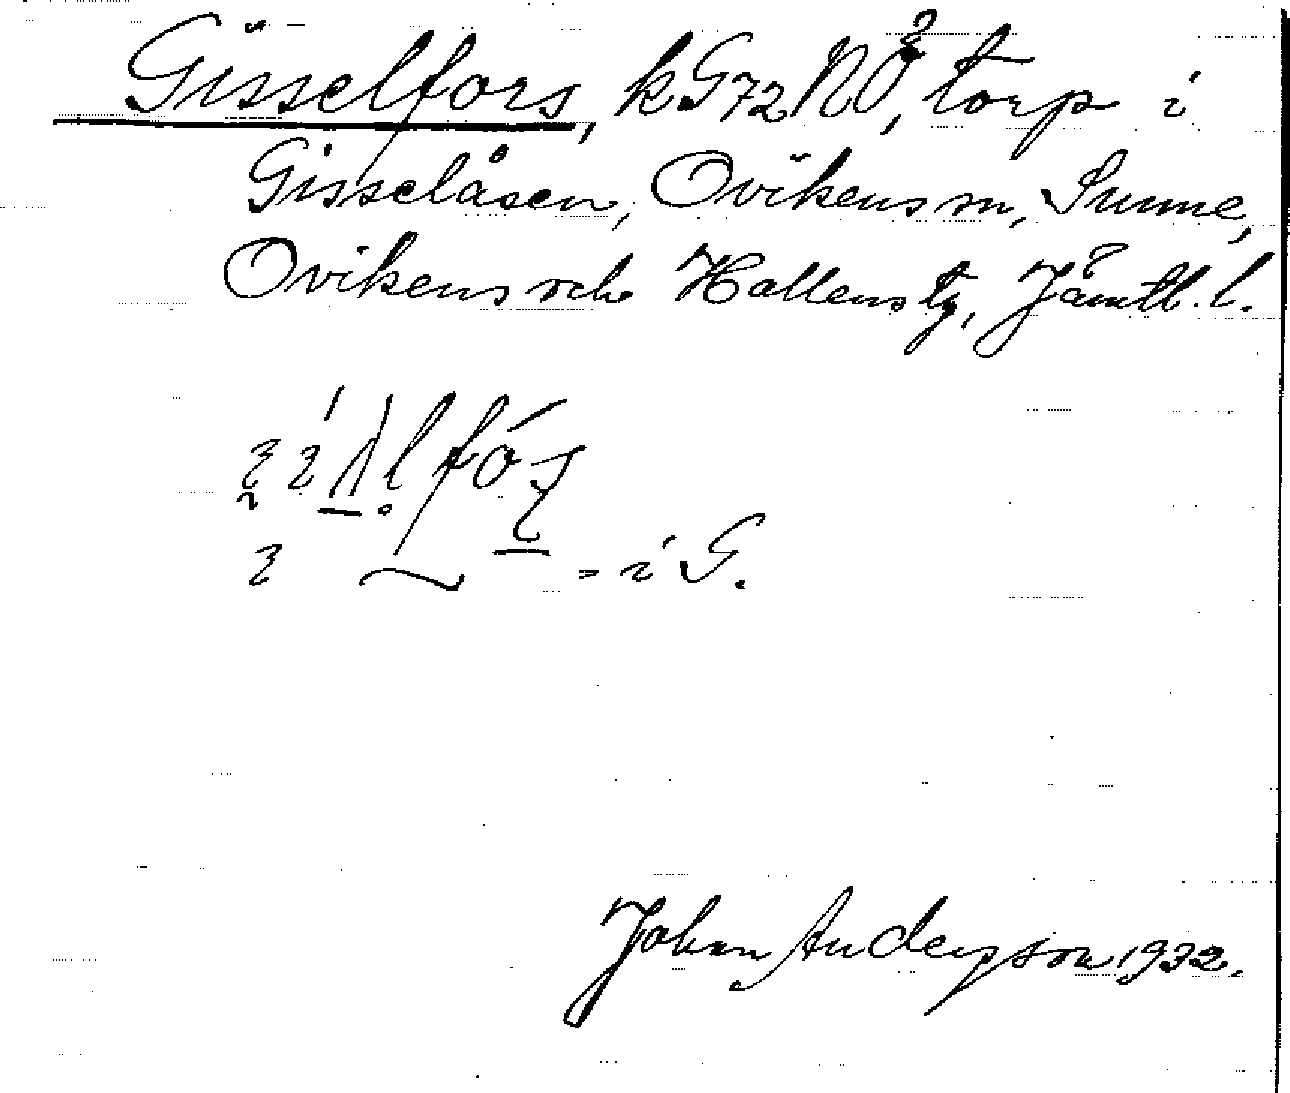 Gisselfors, kG72NÖ, torp i
Gisselåsen, Ovikens sn, Sunne,
Ovikens och Hallens tg, Jämtl. l.
- i G.
Johan Anderson 1932.